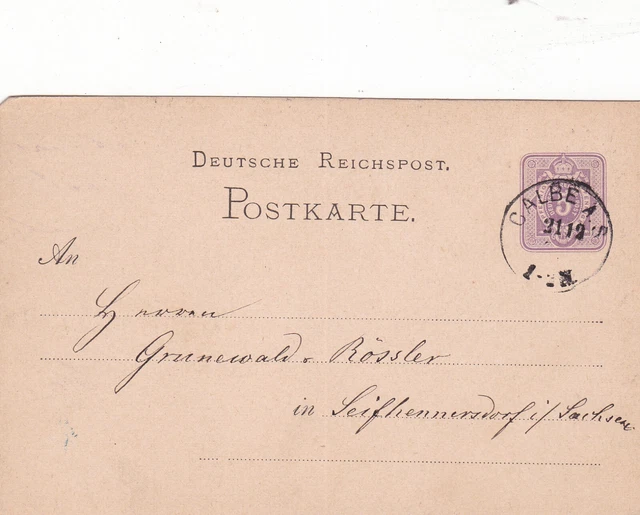 DEUTSCHE REICHSPOST.
POSTKARTE.
5
CALBE A/S
21 12
1-2N.
An
Herren
Grunewald & Rössler
in Seifhennersdorf i/ Sachsen